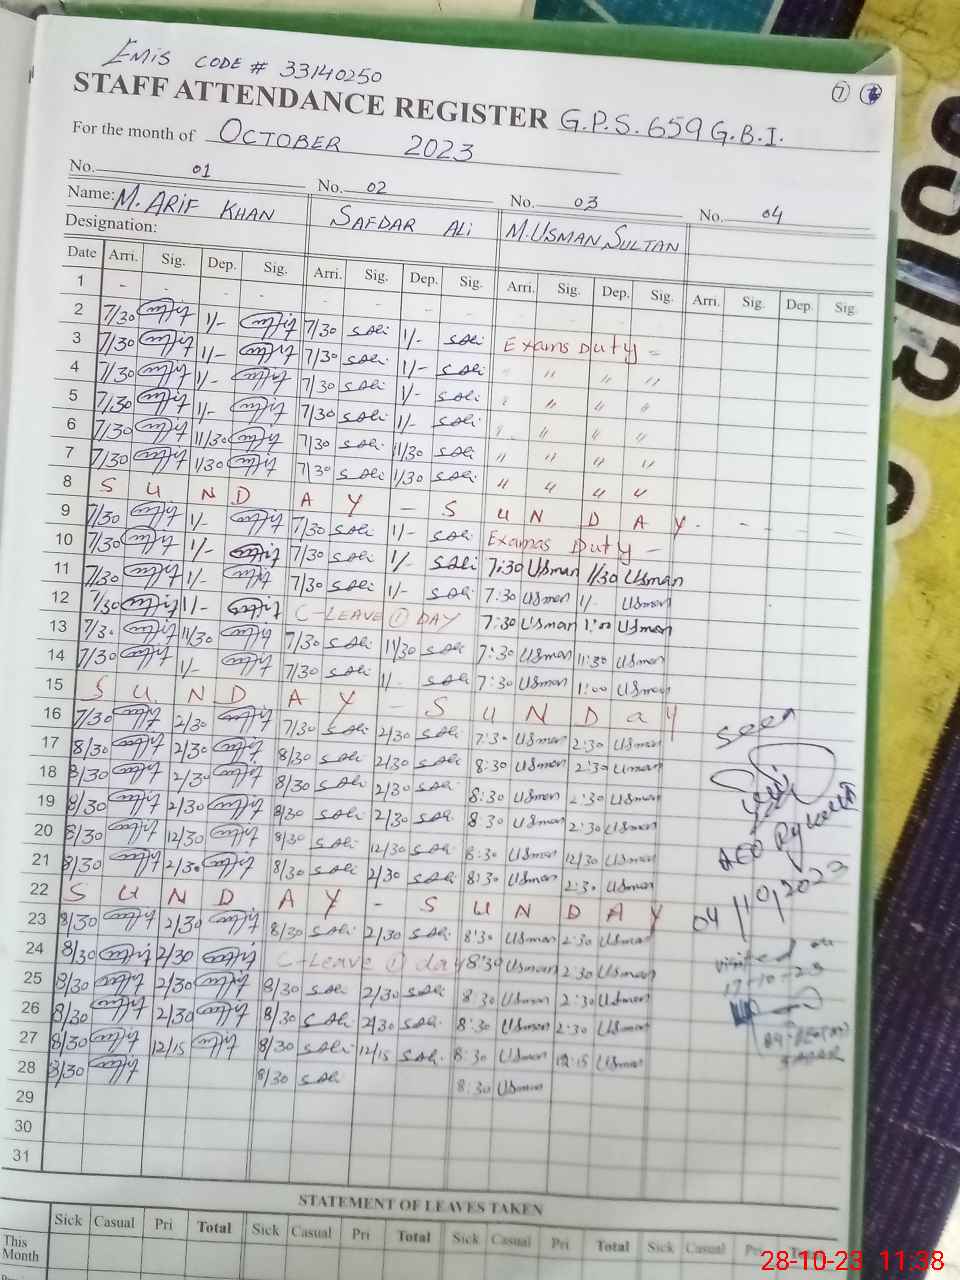 EMIS CODE # 33140250
STAFF ATTENDANCE REGISTER G.P.S. 659 G.B.I.
For the month of OCTOBER 2023
No. 01 No. 02 No. 03 No. 04
Name: M. ARIF KHAN SAFDAR ALI M. USMAN SULTAN
Designation:
Date Arri. Sig. Dep. Sig. Arri. Sig. Dep. Sig. Arri. Sig. Dep. Sig. Arri. Sig. Dep. Sig.
1 - - - - - -
2 7/30 1/- 7/30 SAli 1/- SAli Exams Duty -
3 7/30 1/- 7/30 SAli 1/- SAli " " "
4 7/30 1/- 7/30 SAli 1/- SAli " " "
5 7/30 1/- 7/30 SAli 1/- SAli " " "
6 7/30 11/30 7/30 SAli 11/30 SAli " " " "
7 7/30 1/30 7/30 SAli 1/30 SAli " " " "
8 S U N D A Y - S U N D A Y - - - -
9 7/30 1/- 7/30 SAli 1/- SAli Examas Duty -
10 7/30 1/- 7/30 SAli 1/- SAli 7:30 Usman 1/30 Usman
11 7/30 1/- 7/30 SAli 1/- SAli 7:30 Usman 1/- Usman
12 7/30 1/- C-LEAVE 1 DAY 7:30 Usman 1:00 Usman
13 7/30 11/30 7/30 SAli 11/30 SAli 7:30 Usman 11:30 Usman
14 7/30 1/- 7/30 SAli 1/- SAli 7:30 Usman 1:00 Usman
15 S U N D A Y - S U N D a Y
16 7/30 2/30 7/30 SAli 2/30 SAli 7:30 Usman 2:30 Usman
17 8/30 2/30 8/30 SAli 2/30 SAli 8:30 Usman 2:30 Usman
18 8/30 2/30 8/30 SAli 2/30 SAli 8:30 Usman 2:30 Usman
19 8/30 2/30 8/30 SAli 2/30 SAli 8:30 Usman 2:30 Usman
20 8/30 12/30 8/30 SAli 12/30 SAli 8:30 Usman 12/30 Usman
21 8/30 2/30 8/30 SAli 2/30 SAli 8:30 Usman 2:30 Usman
22 S U N D A Y - S U N D A Y
23 8/30 2/30 8/30 SAli 2/30 SAli 8:30 Usman 2:30 Usman
24 8/30 2/30 C-Leave 1 day 8:30 Usman 2:30 Usman
25 8/30 2/30 8/30 SAli 2/30 SAli 8:30 Usman 2:30 Usman
26 8/30 2/30 8/30 SAli 2/30 SAli 8:30 Usman 2:30 Usman
27 8/30 12/15 8/30 SAli 12/15 SAli 8:30 Usman 12:15 Usman
28 8/30 8/30 SAli 8:30 Usman
29
30
31
seen
AEO
04/10/2023
visited on
17-10-23
STATEMENT OF LEAVES TAKEN
Sick Casual Pri Total Sick Casual Pri Total Sick Casual Pri Total Sick Casual Pri Total
This Month
28-10-23 11:38